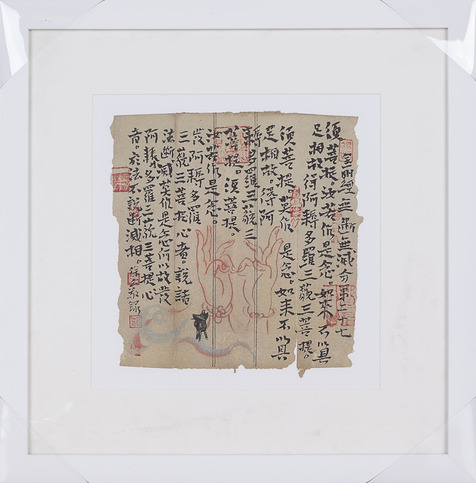 金剛經無斷無滅分第二十七
須菩提汝若作是念。如來不以具
足相故得阿耨多羅三藐三菩提。
須菩提。莫作是念。如來不以具
足相故。得阿
耨多羅三藐三
菩提。須菩提。
汝若作是念。
發阿耨多羅
三藐三菩提心者。說諸
法斷滅莫作是念何以故發
阿耨多羅三藐三菩提心
者於法不說斷滅相。